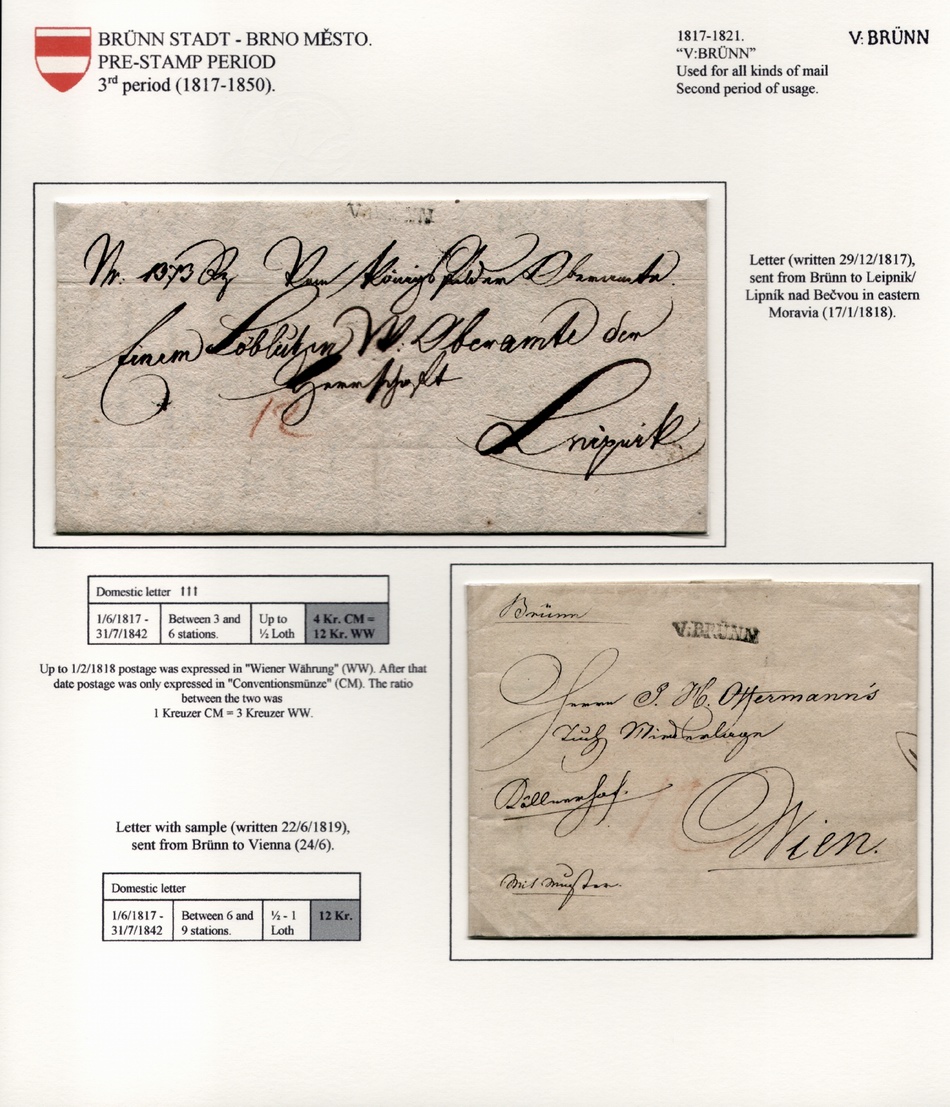 BRÜNN STADT - BRNO MĚSTO.
PRE-STAMP PERIOD
3rd period (1817-1850).
1817-1821.
"V:BRÜNN"
Used for all kinds of mail
Second period of usage.
V: BRÜNN
V:BRÜNN
Nr. 1373 Vom Königsfelder Oberamte.
Einem Löblichen W. Oberamte der
Herrschaft
12
Leipnik
Letter (written 29/12/1817),
sent from Brünn to Leipnik/
Lipník nad Bečvou in eastern
Moravia (17/1/1818).
Domestic letter ↑↑↑
1/6/1817 - 31/7/1842 Between 3 and 6 stations. Up to ½ Loth 4 Kr. CM = 12 Kr. WW
Up to 1/2/1818 postage was expressed in "Wiener Währung" (WW). After that
date postage was only expressed in "Conventionsmünze" (CM). The ratio
between the two was
1 Kreuzer CM = 3 Kreuzer WW.
Brünn
V:BRÜNN
Herrn J. H. Offermann's
Tuch Niederlage
Köllnerhof.
12
Wien.
Mit Muster.
Letter with sample (written 22/6/1819),
sent from Brünn to Vienna (24/6).
Domestic letter
1/6/1817 - 31/7/1842 Between 6 and 9 stations. ½ - 1 Loth 12 Kr.